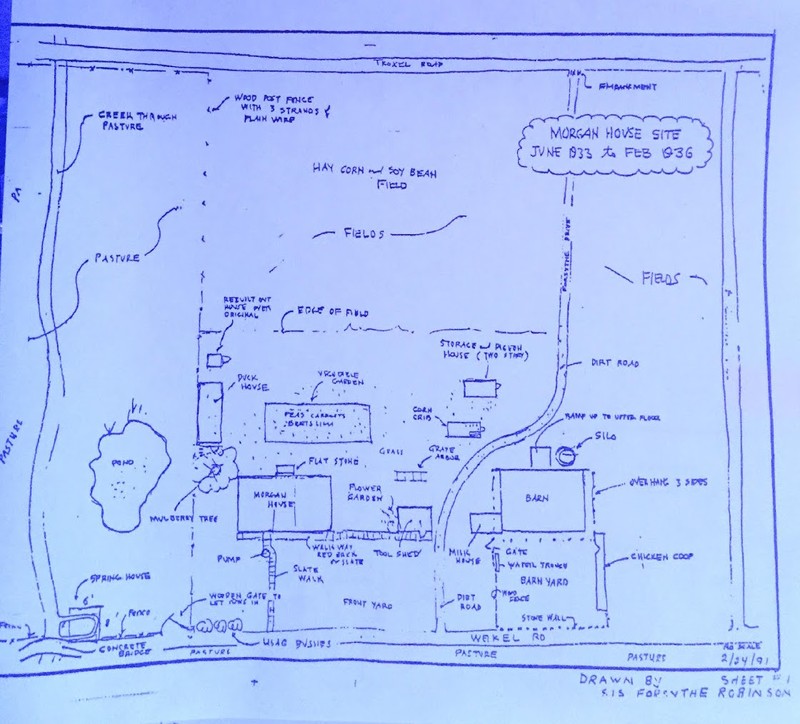 TROXEL ROAD
EMBANKMENT
WOOD POST FENCE
WITH 3 STRANDS
PLAIN WIRE
CREEK THROUGH
PASTURE
MORGAN HOUSE SITE
JUNE 1933 to FEB 1936
HAY CORN and SOY BEAN
FIELD
FIELDS
FORSYTHE DRIVE
PASTURE
FIELDS
REBUILT OUT
HOUSE OVER
ORIGINAL
EDGE OF FIELD
STORAGE and PIGEON
HOUSE (TWO STORY)
DIRT ROAD
DUCK
HOUSE
VEGETABLE
GARDEN
PEAS CARROTS
BEETS LIMA
CORN
CRIB
RAMP UP TO UPPER FLOOR
SILO
PASTURE
POND
FLAT STONE
GRASS
GRAPE
ARBOR
MORGAN
HOUSE
FLOWER
GARDEN
BARN
OVERHANG 3 SIDES
MULBERRY TREE
WALK WAY
RED BRICK
or SLATE
TOOL SHED
MILK
HOUSE
GATE
WATER TROUGH
CHICKEN COOP
PUMP
SLATE
WALK
BARN YARD
SPRING HOUSE
6'
8'
FENCE
WOODEN GATE TO
LET COWS IN
FRONT YARD
DIRT
ROAD
STONE WALL
CONCRETE
BRIDGE
PASTURE
LILAC BUSHES
WEIKEL RD
PASTURE
PASTURE
NO SCALE
2/24/91
DRAWN BY
SIS FORSYTHE ROBINSON
SHEET #1